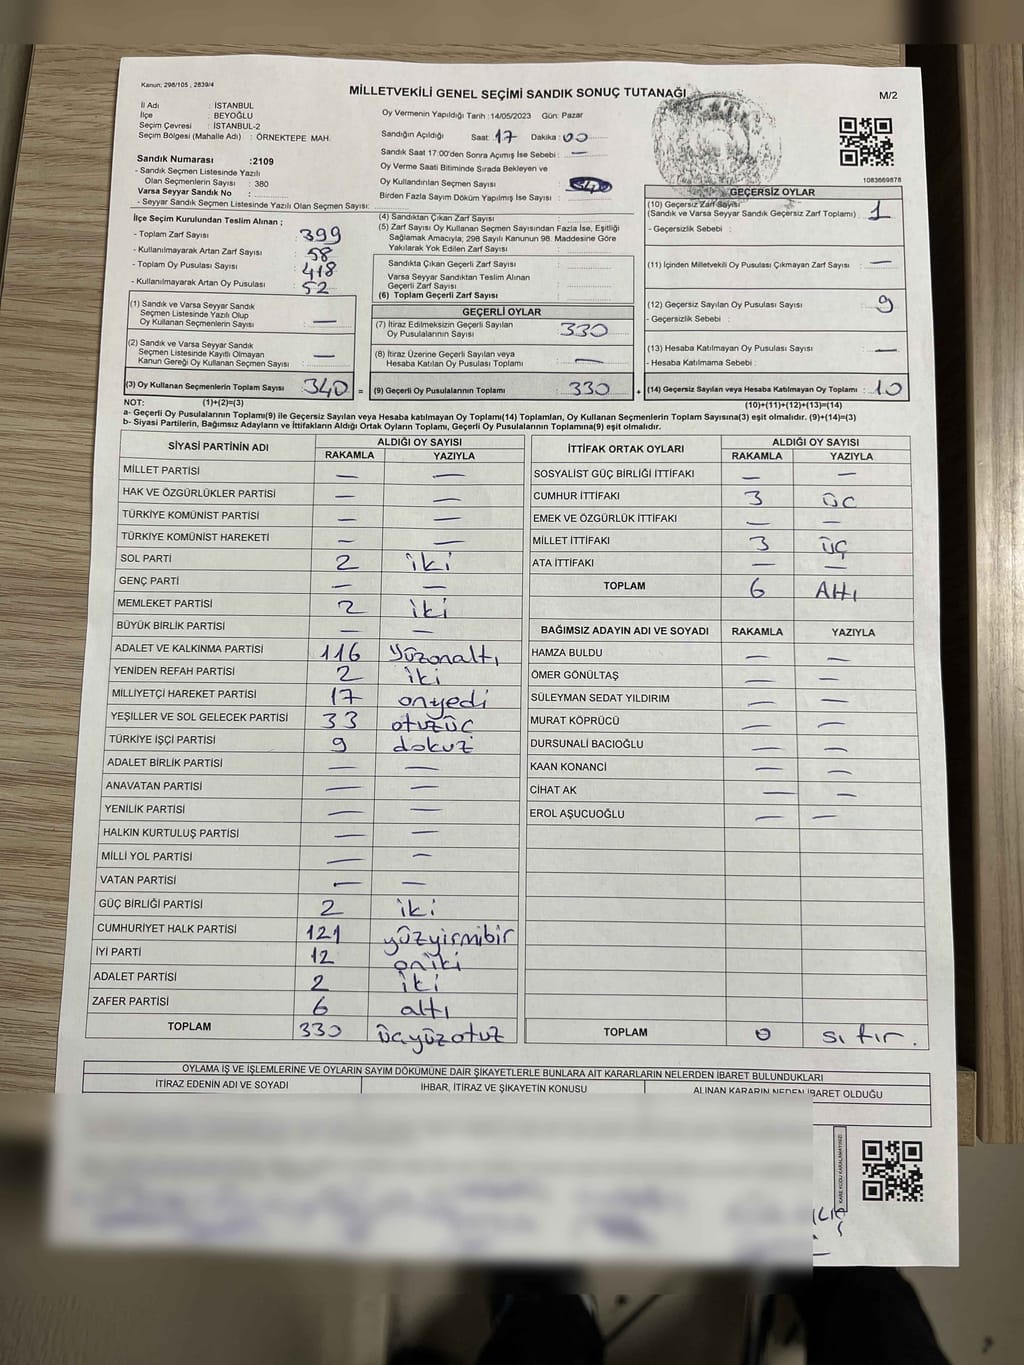 Kanun: 298/105 , 2839/4
MİLLETVEKİLİ GENEL SEÇİMİ SANDIK SONUÇ TUTANAĞI
M/2
İl Adı : İSTANBUL
İlçe : BEYOĞLU
Seçim Çevresi : İSTANBUL-2
Seçim Bölgesi (Mahalle Adı) : ÖRNEKTEPE MAH.
Sandık Numarası :2109
- Sandık Seçmen Listesinde Yazılı
Olan Seçmenlerin Sayısı : 380
Varsa Seyyar Sandık No :
- Seyyar Sandık Seçmen Listesinde Yazılı Olan Seçmenlerin Sayısı:
Oy Vermenin Yapıldığı Tarih : 14/05/2023 Gün: Pazar
Sandığın Açıldığı Saat: 17 Dakika : 00
Sandık Saat 17:00'den Sonra Açımış İse Sebebi : —
Oy Verme Saati Bitiminde Sırada Bekleyen ve
Oy Kullandırılan Seçmen Sayısı
Birden Fazla Sayım Döküm Yapılmış İse Sayısı :
1083669878
İlçe Seçim Kurulundan Teslim Alınan ;
- Toplam Zarf Sayısı : 399
- Kullanılmayarak Artan Zarf Sayısı : 58
- Toplam Oy Pusulası Sayısı : 418
- Kullanılmayarak Artan Oy Pusulası : 52
(1) Sandık ve Varsa Seyyar Sandık
Seçmen Listesinde Yazılı Olup
Oy Kullanan Seçmenlerin Sayısı : —
(2) Sandık ve Varsa Seyyar Sandık
Seçmen Listesinde Kayıtlı Olmayan
Kanun Gereği Oy Kullanan Seçmen Sayısı : —
(3) Oy Kullanan Seçmenlerin Toplam Sayısı 340 =
(4) Sandıktan Çıkan Zarf Sayısı :
(5) Zarf Sayısı Oy Kullanan Seçmen Sayısından Fazla İse, Eşitliği
Sağlamak Amacıyla, 298 Sayılı Kanunun 98. Maddesine Göre
Yakılarak Yok Edilen Zarf Sayısı :
Sandıkta Çıkan Geçerli Zarf Sayısı :
Varsa Seyyar Sandıktan Teslim Alınan
Geçerli Zarf Sayısı :
(6) Toplam Geçerli Zarf Sayısı :
GEÇERLİ OYLAR
(7) İtiraz Edilmeksizin Geçerli Sayılan
Oy Pusulalarının Sayısı : 330
(8) İtiraz Üzerine Geçerli Sayılan veya
Hesaba Katılan Oy Pusulası Toplamı : —
(9) Geçerli Oy Pusulalarının Toplamı : 330 +
GEÇERSİZ OYLAR
(10) Geçersiz Zarf Sayısı
(Sandık ve Varsa Seyyar Sandık Geçersiz Zarf Toplamı) : 1
- Geçersizlik Sebebi :
(11) İçinden Milletvekili Oy Pusulası Çıkmayan Zarf Sayısı : —
(12) Geçersiz Sayılan Oy Pusulası Sayısı : 9
- Geçersizlik Sebebi :
(13) Hesaba Katılmayan Oy Pusulası Sayısı : —
- Hesaba Katılmama Sebebi :
(14) Geçersiz Sayılan veya Hesaba Katılmayan Oy Toplamı : 10
NOT: (1)+(2)=(3) (10)+(11)+(12)+(13)=(14)
a- Geçerli Oy Pusulalarının Toplamı(9) ile Geçersiz Sayılan veya Hesaba katılmayan Oy Toplamı(14) Toplamları, Oy Kullanan Seçmenlerin Toplam Sayısına(3) eşit olmalıdır. (9)+(14)=(3)
b- Siyasi Partilerin, Bağımsız Adayların ve İttifakların Aldığı Ortak Oyların Toplamı, Geçerli Oy Pusulalarının Toplamına(9) eşit olmalıdır.
SİYASİ PARTİNİN ADI ALDIĞI OY SAYISI
RAKAMLA YAZIYLA
MİLLET PARTİSİ — —
HAK VE ÖZGÜRLÜKLER PARTİSİ — —
TÜRKİYE KOMÜNİST PARTİSİ — —
TÜRKİYE KOMÜNİST HAREKETİ — —
SOL PARTİ 2 iki
GENÇ PARTİ — —
MEMLEKET PARTİSİ 2 iki
BÜYÜK BİRLİK PARTİSİ — —
ADALET VE KALKINMA PARTİSİ 116 yüzonaltı
YENİDEN REFAH PARTİSİ 2 iki
MİLLİYETÇİ HAREKET PARTİSİ 17 onyedi
YEŞİLLER VE SOL GELECEK PARTİSİ 33 otuzüç
TÜRKİYE İŞÇİ PARTİSİ 9 dokuz
ADALET BİRLİK PARTİSİ — —
ANAVATAN PARTİSİ — —
YENİLİK PARTİSİ — —
HALKIN KURTULUŞ PARTİSİ — —
MİLLİ YOL PARTİSİ — —
VATAN PARTİSİ — —
GÜÇ BİRLİĞİ PARTİSİ 2 iki
CUMHURİYET HALK PARTİSİ 121 yüzyirmibir
İYİ PARTİ 12 oniki
ADALET PARTİSİ 2 iki
ZAFER PARTİSİ 6 altı
TOPLAM 330 üçyüzotuz
İTTİFAK ORTAK OYLARI ALDIĞI OY SAYISI
RAKAMLA YAZIYLA
SOSYALİST GÜÇ BİRLİĞİ İTTİFAKI — —
CUMHUR İTTİFAKI 3 üç
EMEK VE ÖZGÜRLÜK İTTİFAKI — —
MİLLET İTTİFAKI 3 üç
ATA İTTİFAKI — —
TOPLAM 6 Altı
BAĞIMSIZ ADAYIN ADI VE SOYADI RAKAMLA YAZIYLA
HAMZA BULDU — —
ÖMER GÖNÜLTAŞ — —
SÜLEYMAN SEDAT YILDIRIM — —
MURAT KÖPRÜCÜ — —
DURSUNALİ BACIOĞLU — —
KAAN KONANCİ — —
CİHAT AK — —
EROL AŞUCUOĞLU — —
TOPLAM 0 sıfır.
OYLAMA İŞ VE İŞLEMLERİNE VE OYLARIN SAYIM DÖKÜMÜNE DAİR ŞİKAYETLERLE BUNLARA AİT KARARLARIN NELERDEN İBARET BULUNDUKLARI
İTİRAZ EDENİN ADI VE SOYADI İHBAR, İTİRAZ VE ŞİKAYETİN KONUSU ALINAN KARARIN NEDEN İBARET OLDUĞU
KARE KODU KARALAMAYINIZ!